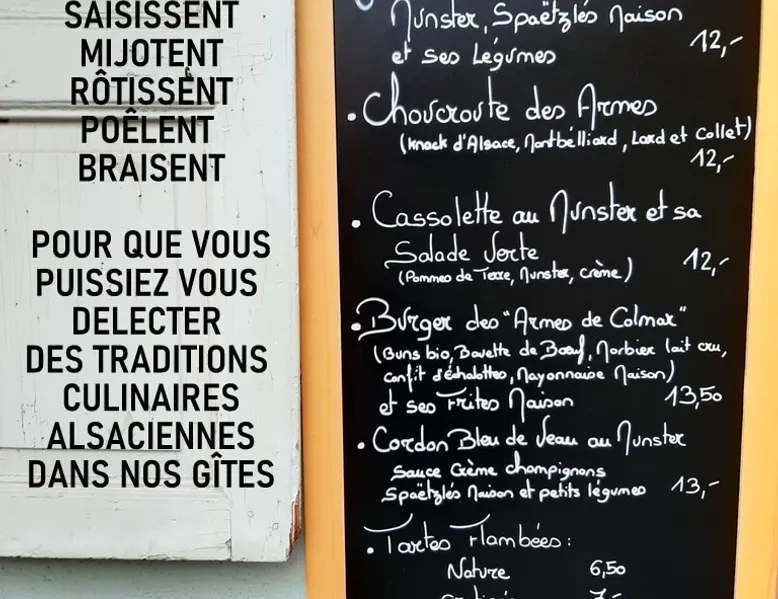 SAISISSENT
MIJOTENT
RÔTISSENT
POÊLENT
BRAISENT
POUR QUE VOUS
PUISSIEZ VOUS
DELECTER
DES TRADITIONS
CULINAIRES
ALSACIENNES
DANS NOS GÎTES
Munster, Spaëtzlés Maison
et ses Légumes 12,-
• Choucroute des Armes
(Knack d'Alsace, Montbélliard, Lard et Collet)
12,-
• Cassolette au Munster et sa
Salade Verte 12,-
(Pommes de Terre, Munster, crème)
• Burger des "Armes de Colmar"
(Buns bio, Bavette de Bœuf, Morbier lait cru,
confit d'échalottes, Mayonnaise Maison)
et ses Frites Maison 13,50
• Cordon Bleu de Veau au Munster
Sauce Crème champignons
Spaëtzlés Maison et petits légumes 13,-
• Tartes Flambées :
Nature 6,50
7,-